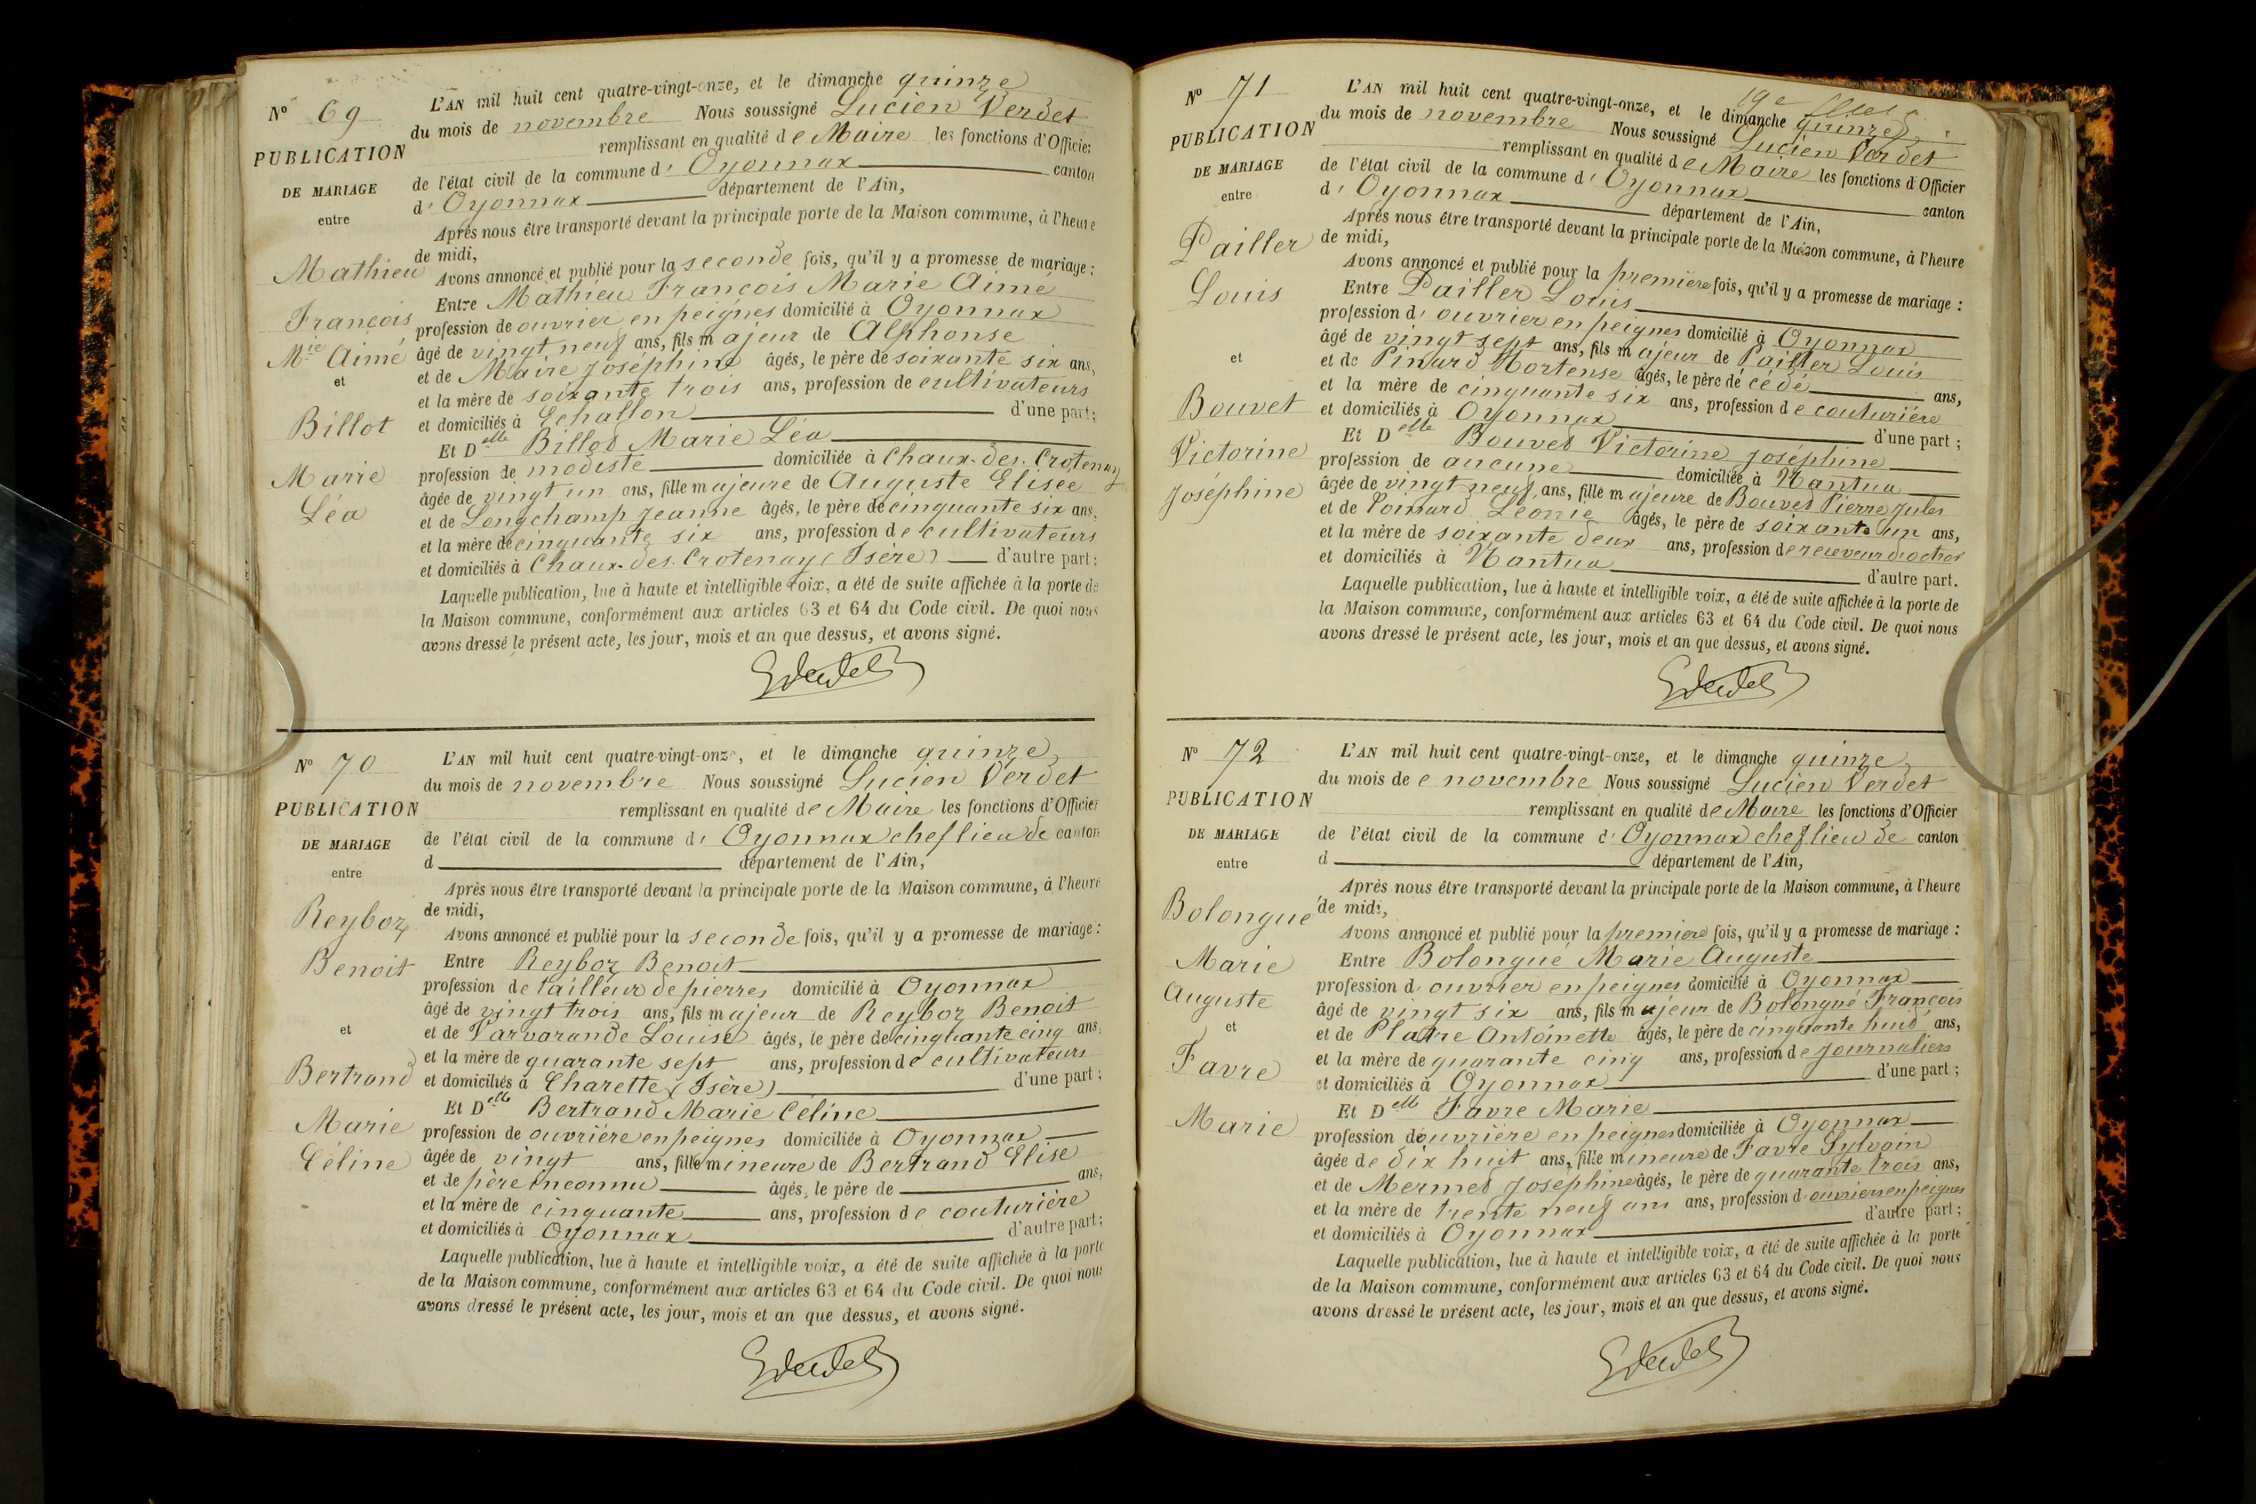 N° 69
PUBLICATION
DE MARIAGE
entre
Mathieu
François
Mie Aimé
et
Billot
Marie
Léa
L'AN mil huit cent quatre-vingt-onze, et le dimanche quinze
du mois de novembre Nous soussigné Lucien Verdet
remplissant en qualité de Maire les fonctions d'Officier
de l'état civil de la commune d' Oyonnax canton
d' Oyonnax département de l'Ain,
Après nous être transporté devant la principale porte de la Maison commune, à l'heure
de midi,
Avons annoncé et publié pour la seconde fois, qu'il y a promesse de mariage :
Entre Mathieu François Marie Aimé
profession de ouvrier en peignes domicilié à Oyonnax
âgé de vingt neuf ans, fils majeur de Alphonse
et de Maire Joséphine âgés, le père de soixante six ans,
et la mère de soixante trois ans, profession de cultivateurs
et domiciliés à Echallon d'une part;
Et Delle Billod Marie Léa
profession de modiste domiciliée à Chaux-des-Crotenay
âgée de vingt un ans, fille majeure de Auguste Elisée
et de Longchamp Jeanne âgés, le père de cinquante six ans,
et la mère de cinquante six ans, profession de cultivateurs
et domiciliés à Chaux-des-Crotenay (Isère) d'autre part;
Laquelle publication, lue à haute et intelligible voix, a été de suite affichée à la porte de
la Maison commune, conformément aux articles 63 et 64 du Code civil. De quoi nous
avons dressé le présent acte, les jour, mois et an que dessus, et avons signé.
N° 70
PUBLICATION
DE MARIAGE
entre
Reyboz
Benoit
et
Bertrand
Marie
Céline
L'AN mil huit cent quatre-vingt-onze, et le dimanche quinze
du mois de novembre Nous soussigné Lucien Verdet
remplissant en qualité de Maire les fonctions d'Officier
de l'état civil de la commune d' Oyonnax chef lieu de canton
d département de l'Ain,
Après nous être transporté devant la principale porte de la Maison commune, à l'heure
de midi,
Avons annoncé et publié pour la seconde fois, qu'il y a promesse de mariage :
Entre Reyboz Benoit
profession de tailleur de pierres domicilié à Oyonnax
âgé de vingt trois ans, fils majeur de Reyboz Benoit
et de Varvarande Louise âgés, le père de cinquante cinq ans,
et la mère de quarante sept ans, profession de cultivateurs
et domiciliés à Charette (Isère) d'une part;
Et Delle Bertrand Marie Céline
profession de ouvrière en peignes domiciliée à Oyonnax
âgée de vingt ans, fille mineure de Bertrand Elise
et de père inconnu âgés, le père de ans,
et la mère de cinquante ans, profession de couturière
et domiciliés à Oyonnax d'autre part;
Laquelle publication, lue à haute et intelligible voix, a été de suite affichée à la porte
de la Maison commune, conformément aux articles 63 et 64 du Code civil. De quoi nous
avons dressé le présent acte, les jour, mois et an que dessus, et avons signé.
N° 71
PUBLICATION
DE MARIAGE
entre
Pailler
Louis
et
Bouvet
Victorine
Joséphine
19e
L'AN mil huit cent quatre-vingt-onze, et le dimanche quinze
du mois de novembre Nous soussigné Lucien Verdet
remplissant en qualité de Maire les fonctions d'Officier
de l'état civil de la commune d' Oyonnax canton
d' Oyonnax département de l'Ain,
Après nous être transporté devant la principale porte de la Maison commune, à l'heure
de midi,
Avons annoncé et publié pour la première fois, qu'il y a promesse de mariage :
Entre Pailler Louis
profession d' ouvrier en peignes domicilié à Oyonnax
âgé de vingt sept ans, fils majeur de Pailler Louis
et de Pinard Hortense âgés, le père décédé ans,
et la mère de cinquante six ans, profession de couturière
et domiciliés à Oyonnax d'une part;
Et Delle Bouved Victorine Joséphine
profession de aucune domiciliée à Nantua
âgée de vingt neuf ans, fille majeure de Bouved Pierre Jules
et de Poinard Léonie âgés, le père de soixante un ans,
et la mère de soixante deux ans, profession de receveur d'octroi
et domiciliés à Nantua d'autre part.
Laquelle publication, lue à haute et intelligible voix, a été de suite affichée à la porte de
la Maison commune, conformément aux articles 63 et 64 du Code civil. De quoi nous
avons dressé le présent acte, les jour, mois et an que dessus, et avons signé.
N° 72
PUBLICATION
DE MARIAGE
entre
Bolongue
Marie
Auguste
et
Favre
Marie
L'AN mil huit cent quatre-vingt-onze, et le dimanche quinze
du mois de e novembre Nous soussigné Lucien Verdet
remplissant en qualité de Maire les fonctions d'Officier
de l'état civil de la commune d' Oyonnax chef lieu de canton
d département de l'Ain,
Après nous être transporté devant la principale porte de la Maison commune, à l'heure
de midi,
Avons annoncé et publié pour la première fois, qu'il y a promesse de mariage :
Entre Bolongue Marie Auguste
profession d' ouvrier en peignes domicilié à Oyonnax
âgé de vingt six ans, fils majeur de Bolongué François
et de Platre Antoinette âgés, le père de cinquante huid ans,
et la mère de quarante cinq ans, profession de journaliers
et domiciliés à Oyonnax d'une part;
Et Delle Favre Marie
profession d'ouvrière en peignes domiciliée à Oyonnax
âgée de dix huit ans, fille mineure de Favre Sylvain
et de Mermed Joséphine âgés, le père de quarante trois ans,
et la mère de trente neuf ans ans, profession d' ouvriers en peignes
et domiciliés à Oyonnax d'autre part;
Laquelle publication, lue à haute et intelligible voix, a été de suite affichée à la porte
de la Maison commune, conformément aux articles 63 et 64 du Code civil. De quoi nous
avons dressé le présent acte, les jour, mois et an que dessus, et avons signé.